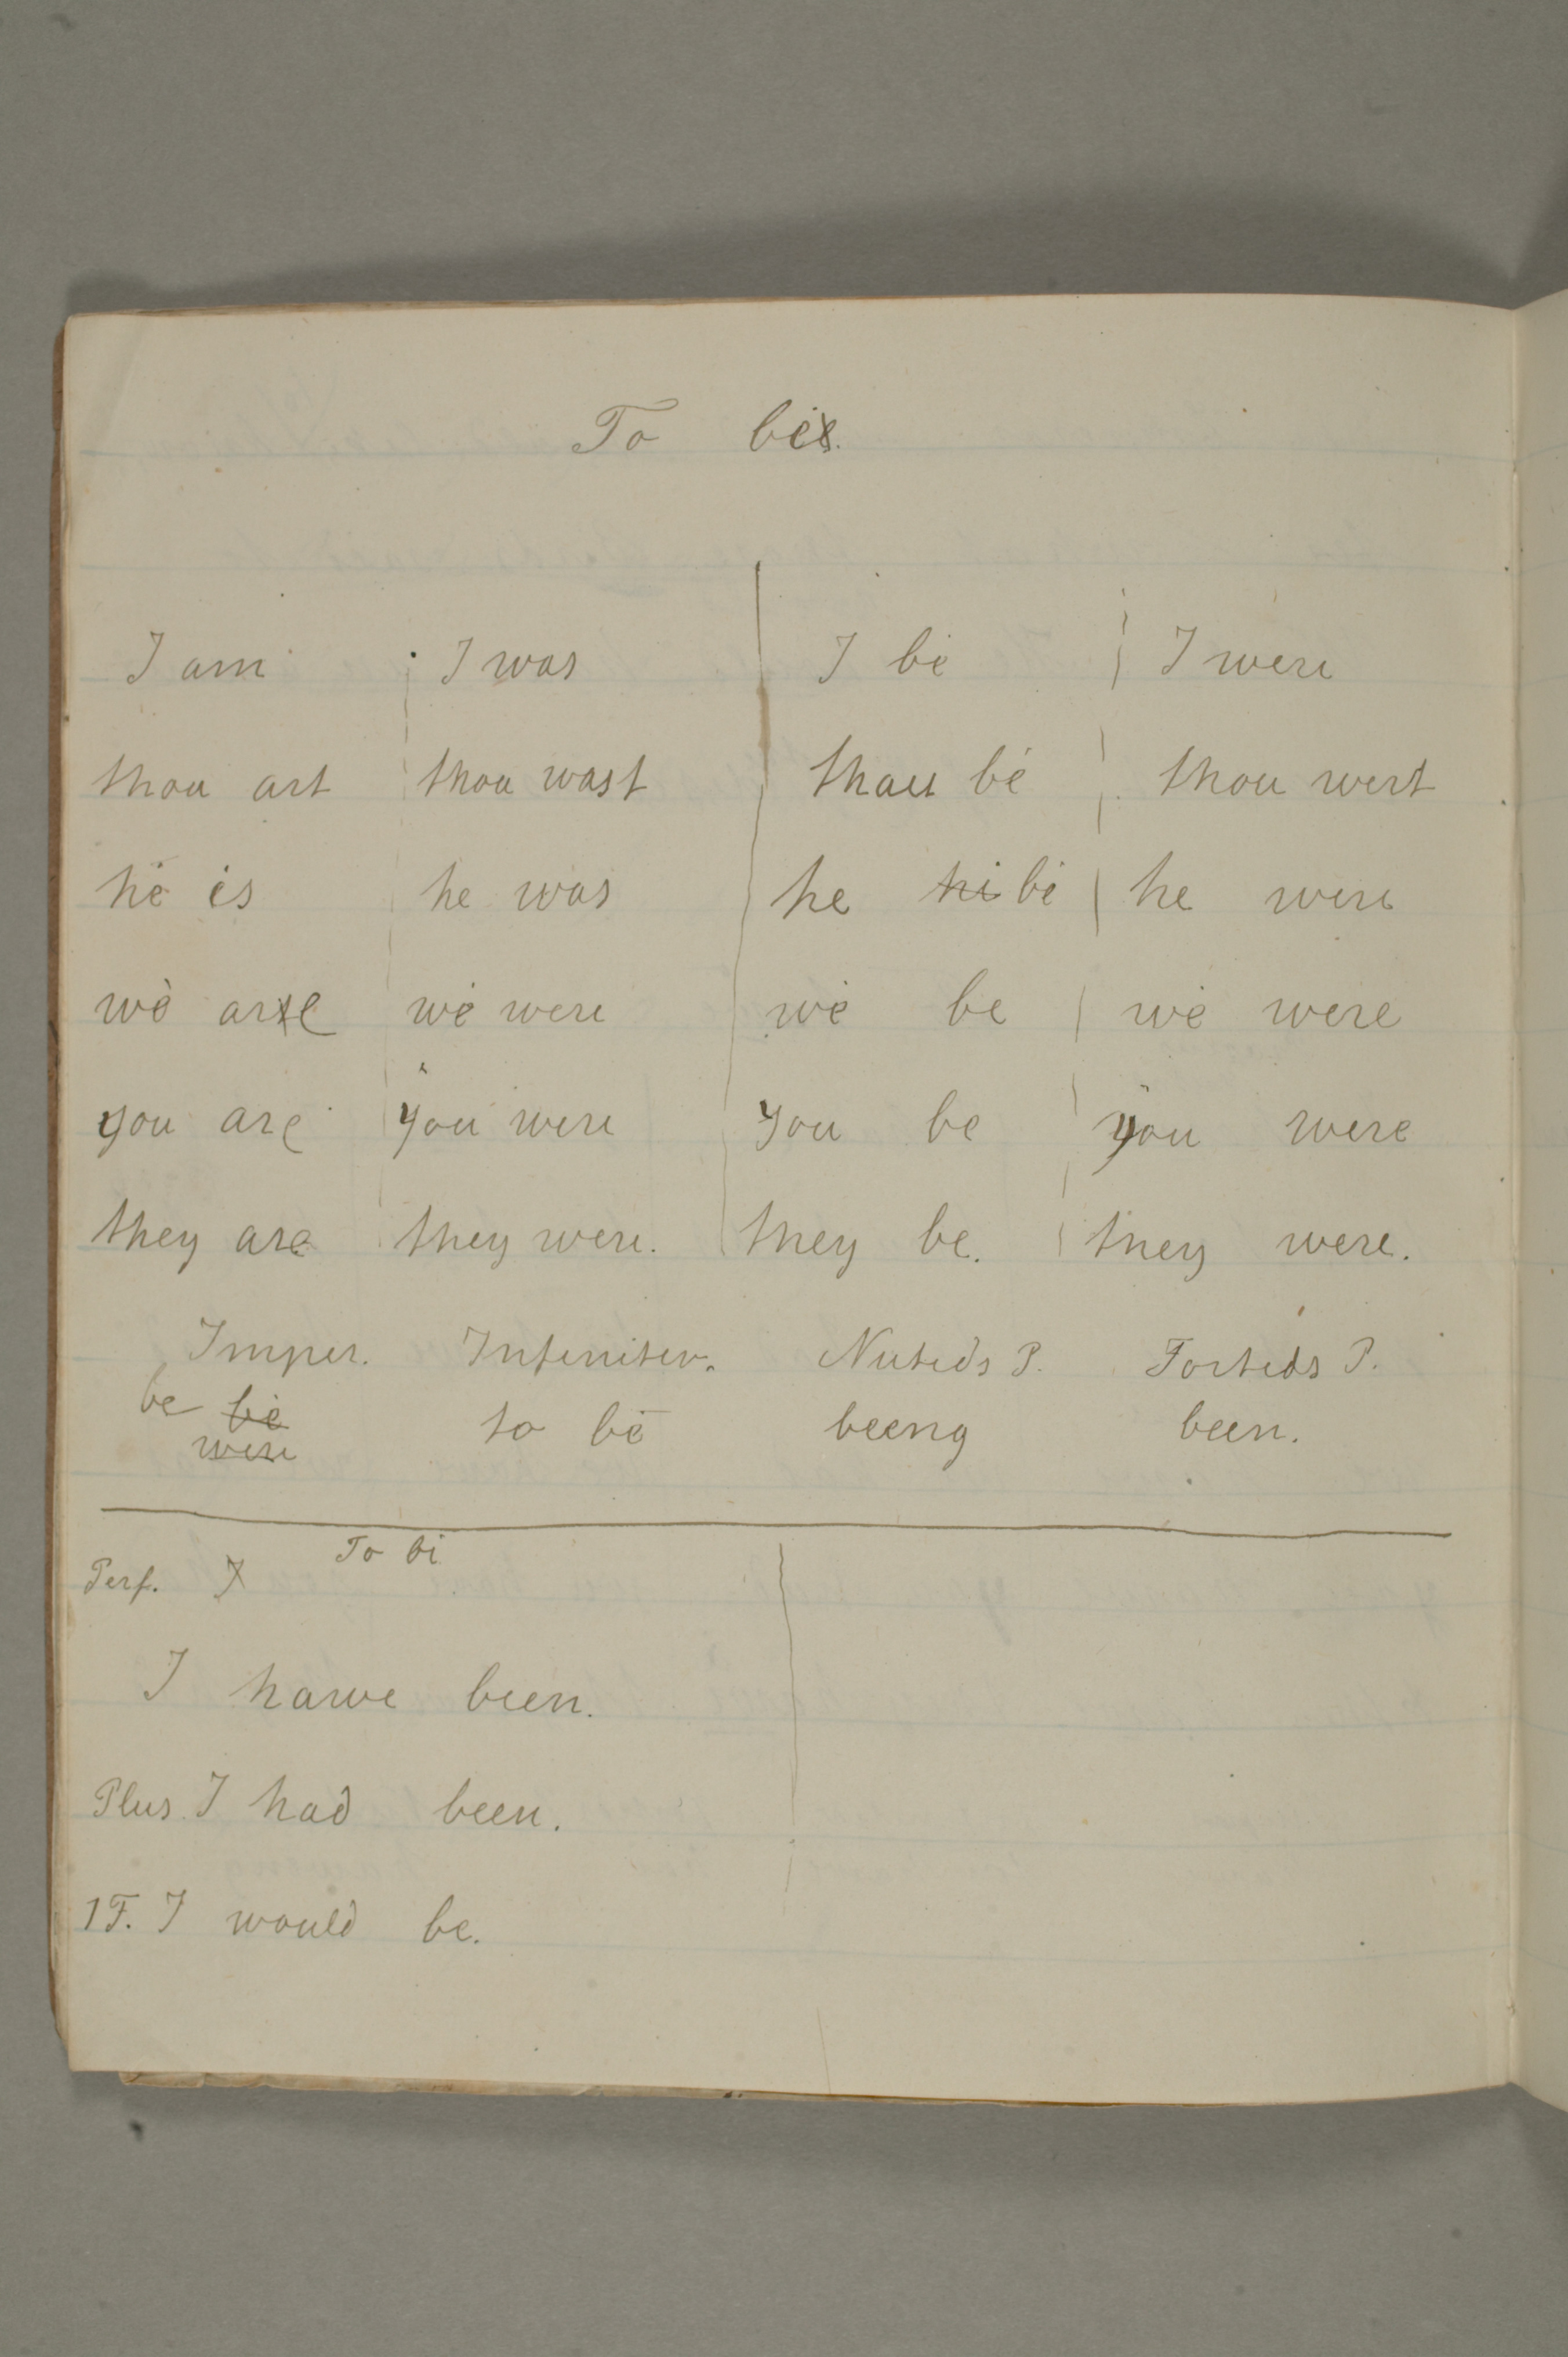 To be
I am I was I be I were
thou art thou wast thou be thou wert
he is he was he hi be he were
we are we were we be we were
you are you were you be you were
they are they were. they be. they were.
Imper. Infenitiv. Nutids P. Fortids P.
be be to be beeng been.
were
To be
Perf. I
I hawe been.
Plus I had been.
1 F. I would be.